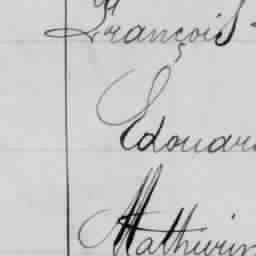 François
Edouar
Mathurin